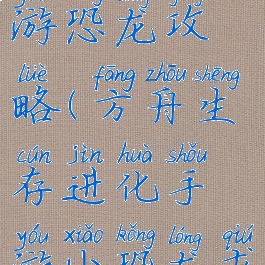 游恐龙攻
lüè fāng zhōu shēng
略(方舟生
cún jìn huà shǒu
存进化手
yóu xiǎo kǒng lóng qiú
游小恐龙